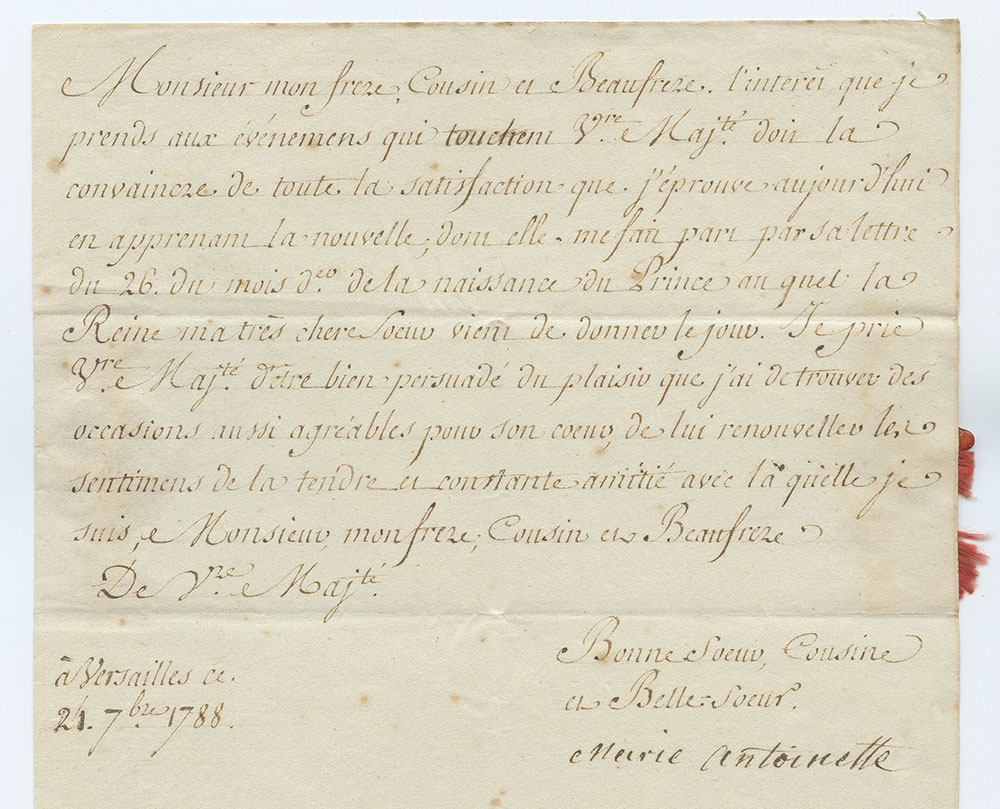 Monsieur mon frere, Cousin et Beaufrere. l'interêt que je
prends aux événemens qui touchent Vre. Majté. doit la
convaincre de toute la satisfaction que j'éprouve aujourd'hui
en apprenant la nouvelle, dont elle me fait part par sa lettre
du 26. du mois der. de la naissance du Prince au quel la
Reine ma très chere Soeur vient de donner le jour. Je prie
Vre. Majté. d'etre bien persuadé du plaisir que j'ai de trouver des
occasions aussi agréables pour son coeur, de lui renouveller les
sentimens de la tendre et constante amitié avec la quelle je
suis, Monsieur, mon frere, Cousin et Beaufrere
De Vre. Majté.
Bonne Soeur, Cousine
et Belle-Soeur.
à Versailles ce.
21. 7bre 1788.
Marie Antoinette